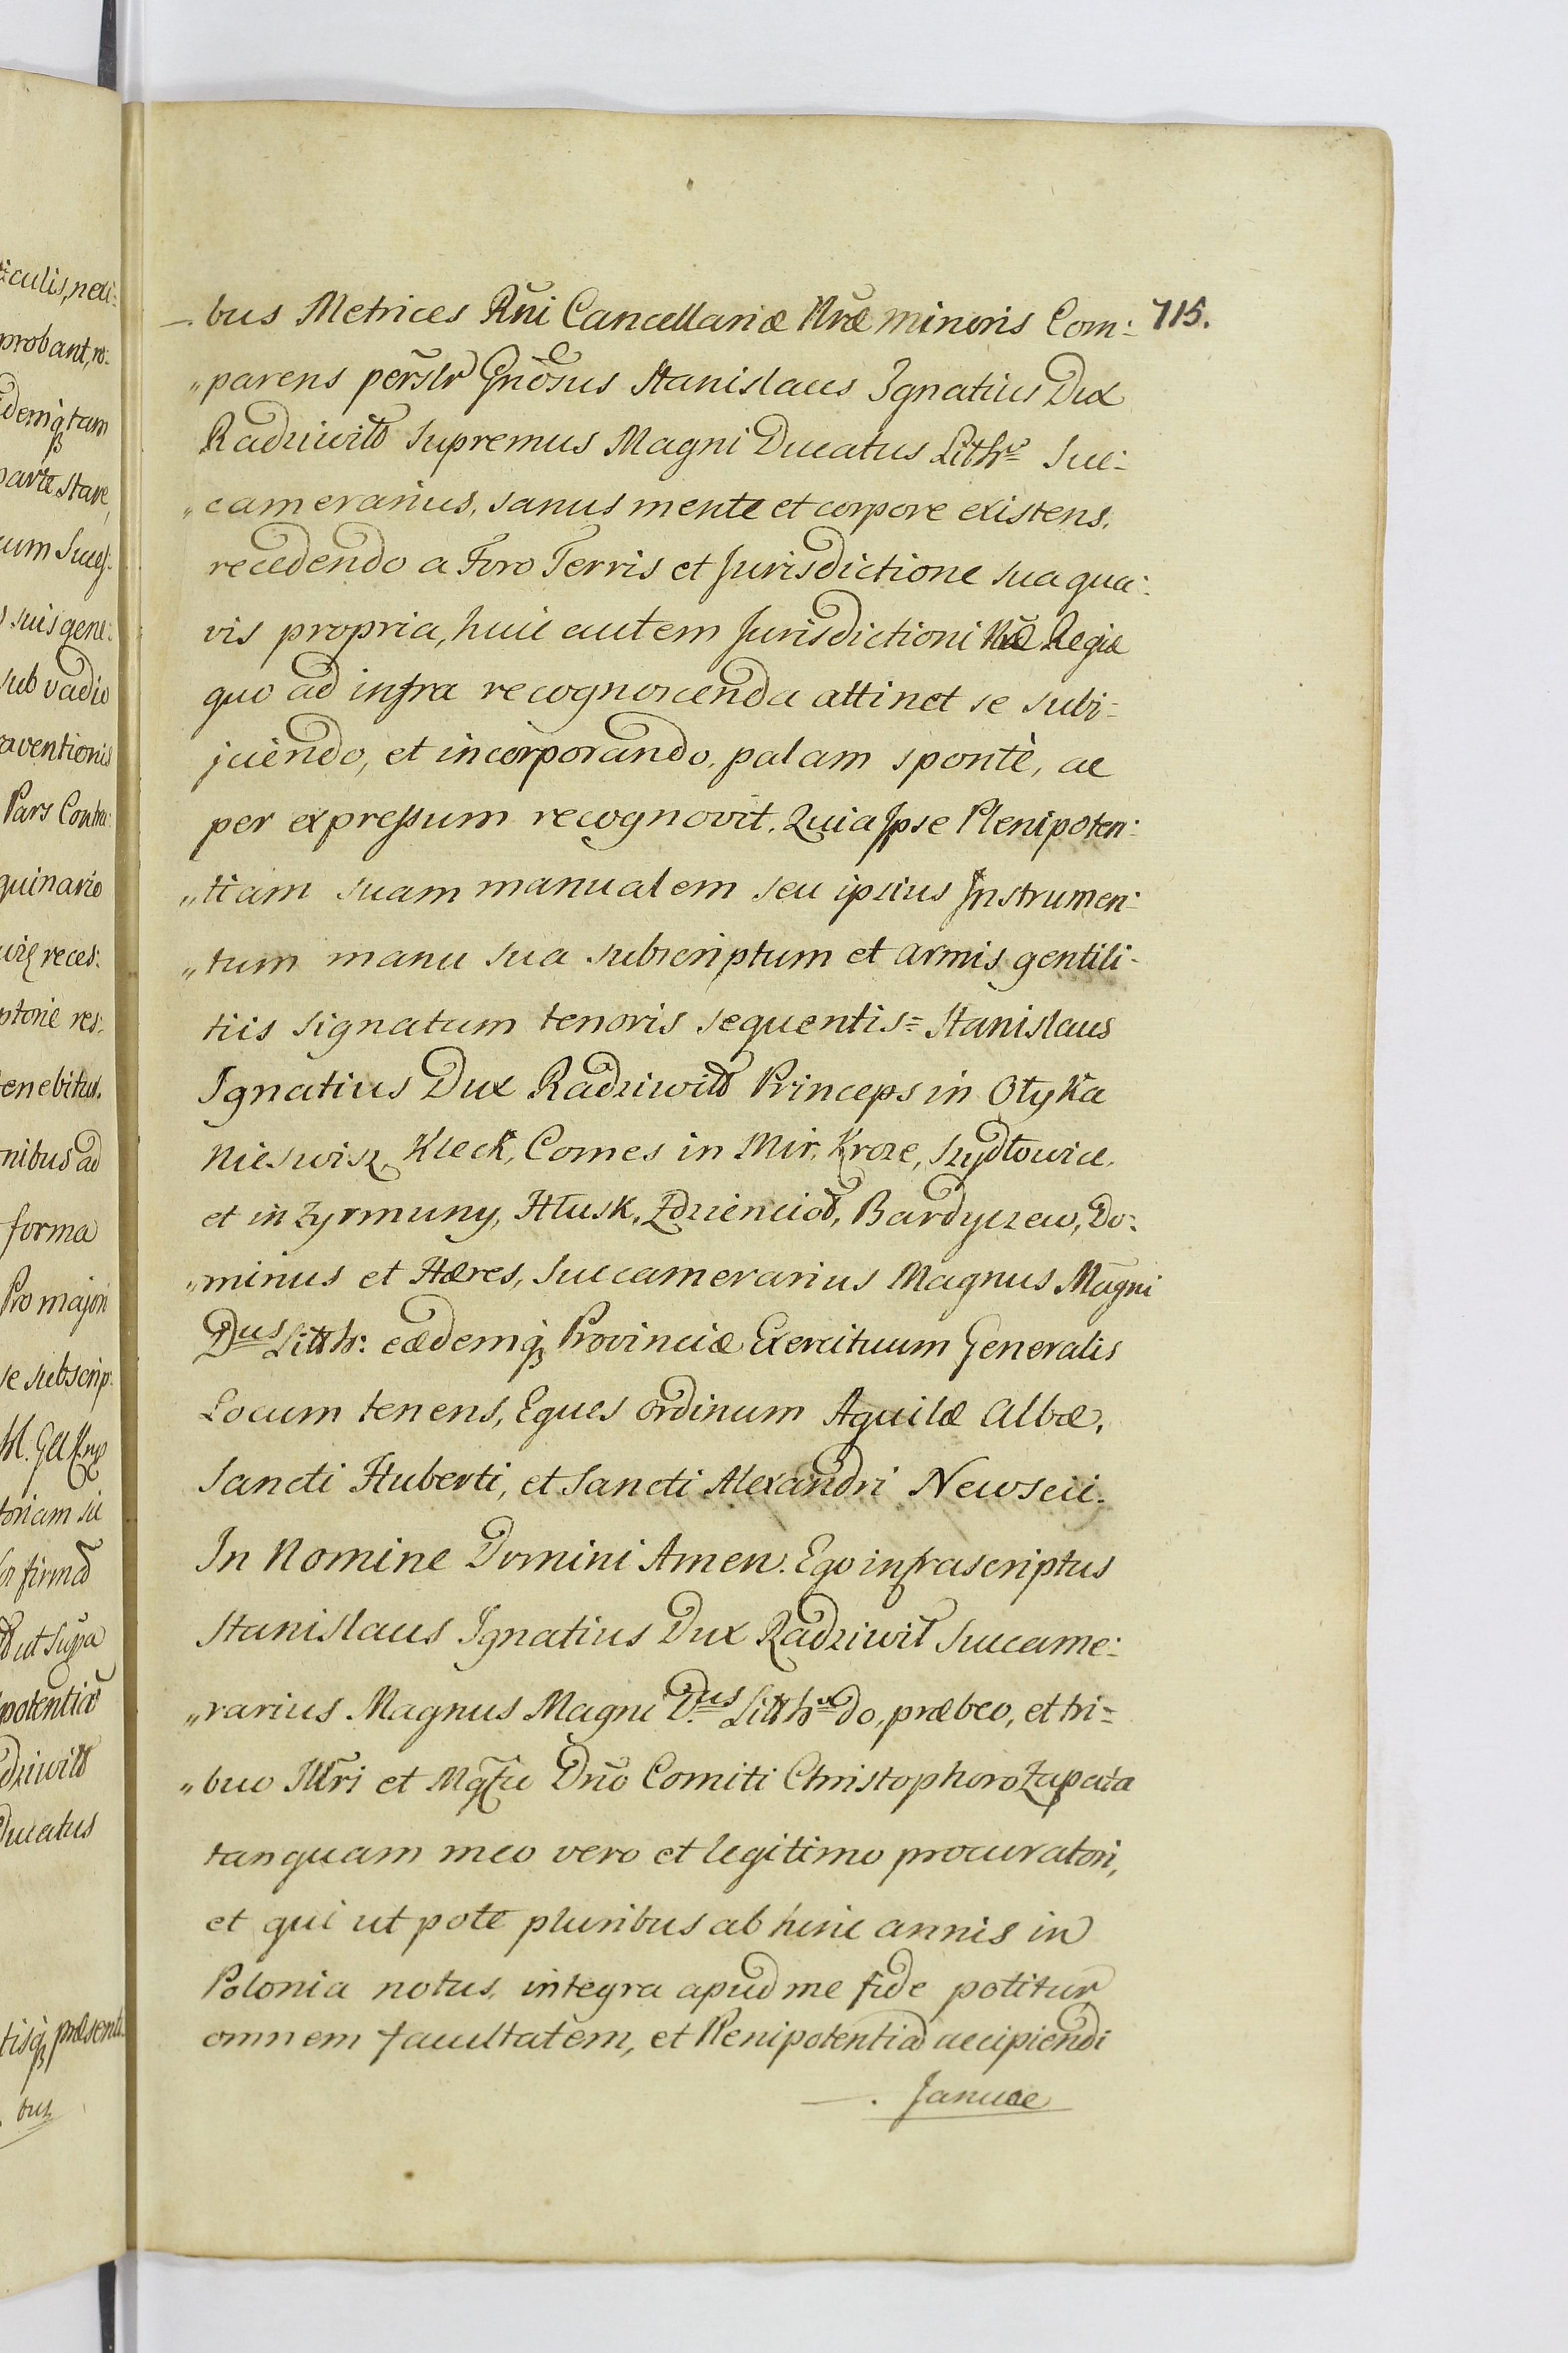 715.
—. bus Metrices Rñi Cancellariæ Nræ minoris Com:
„parens perslr Gnosus Stanislaus Ignatius Dux
Radziwiłł Supremus Magni Ducatus Lith: Suc:
„camerarius, sanus mente et corpore existens,
recedendo a Foro Terris et Jurisdictione sua qua:
vis propria, huic autem Jurisdictioni Næ Regiæ
quo ad infra recognoscenda attinet se subi:
jciendo, et incorporando, palam spontè, ac
per expressum recognovit. Quia Ipse Plenipoten:
„tiam suam manualem seu ipsius Instrumen:
„tum manu sua subscriptum et armis gentili:
tiis signatum tenoris sequentis = Stanislaus
Ignatius Dux Radziwiłł Princeps in Ołyka
Nieswisz, Kleck, Comes in Mir, Kroze, Szydłowiec,
et in Zyrmuny, Hłusk, Zdziencioł, Bardyczew, Do:
„minus et Hæres, Succamerarius Magnus Magni
Dus Litth: eædemq Provinciæ Exercituum Generalis
Locum tenens, Eques ordinum Aquilæ Albæ,
Sancti Huberti, et Sancti Alexandri Newscii.
In Nomine Domini Amen. Ego infrascriptus
Stanislaus Ignatius Dux Radziwił Succame:
„rarius Magnus Magni Dus Litth do, præbeo, et tri:
„buo Illri et Mgfco Dño Comiti Christophoro Zapata
tanquam meo vero et legitimo procuratori,
et qui ut pote pluribus ab hinc annis in
Polonia notus, integra apud me fide potitur
omnem facultatem, et Plenipotentiã accipiendi
—. Januæ
culis, nec:
probant, ro:
demq tam
parte stare,
cum Succes:
suis gene:
sub vadio
raventionis
Pars Contra:
quinario
reces:
ptorie res:
tenebitur.
nibus ad
forma
Pro majori
se subscrip:
toriam
firmã
ut supa
potentiã
dziwiłł
Ducatus
tisq præsenti:
bus